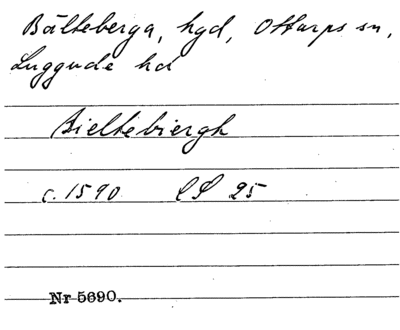 Bälteberga, hgd, Ottarps sn,
Luggude hd
Bieltebiergh
c. 1590 LP 25
Nr 5690.